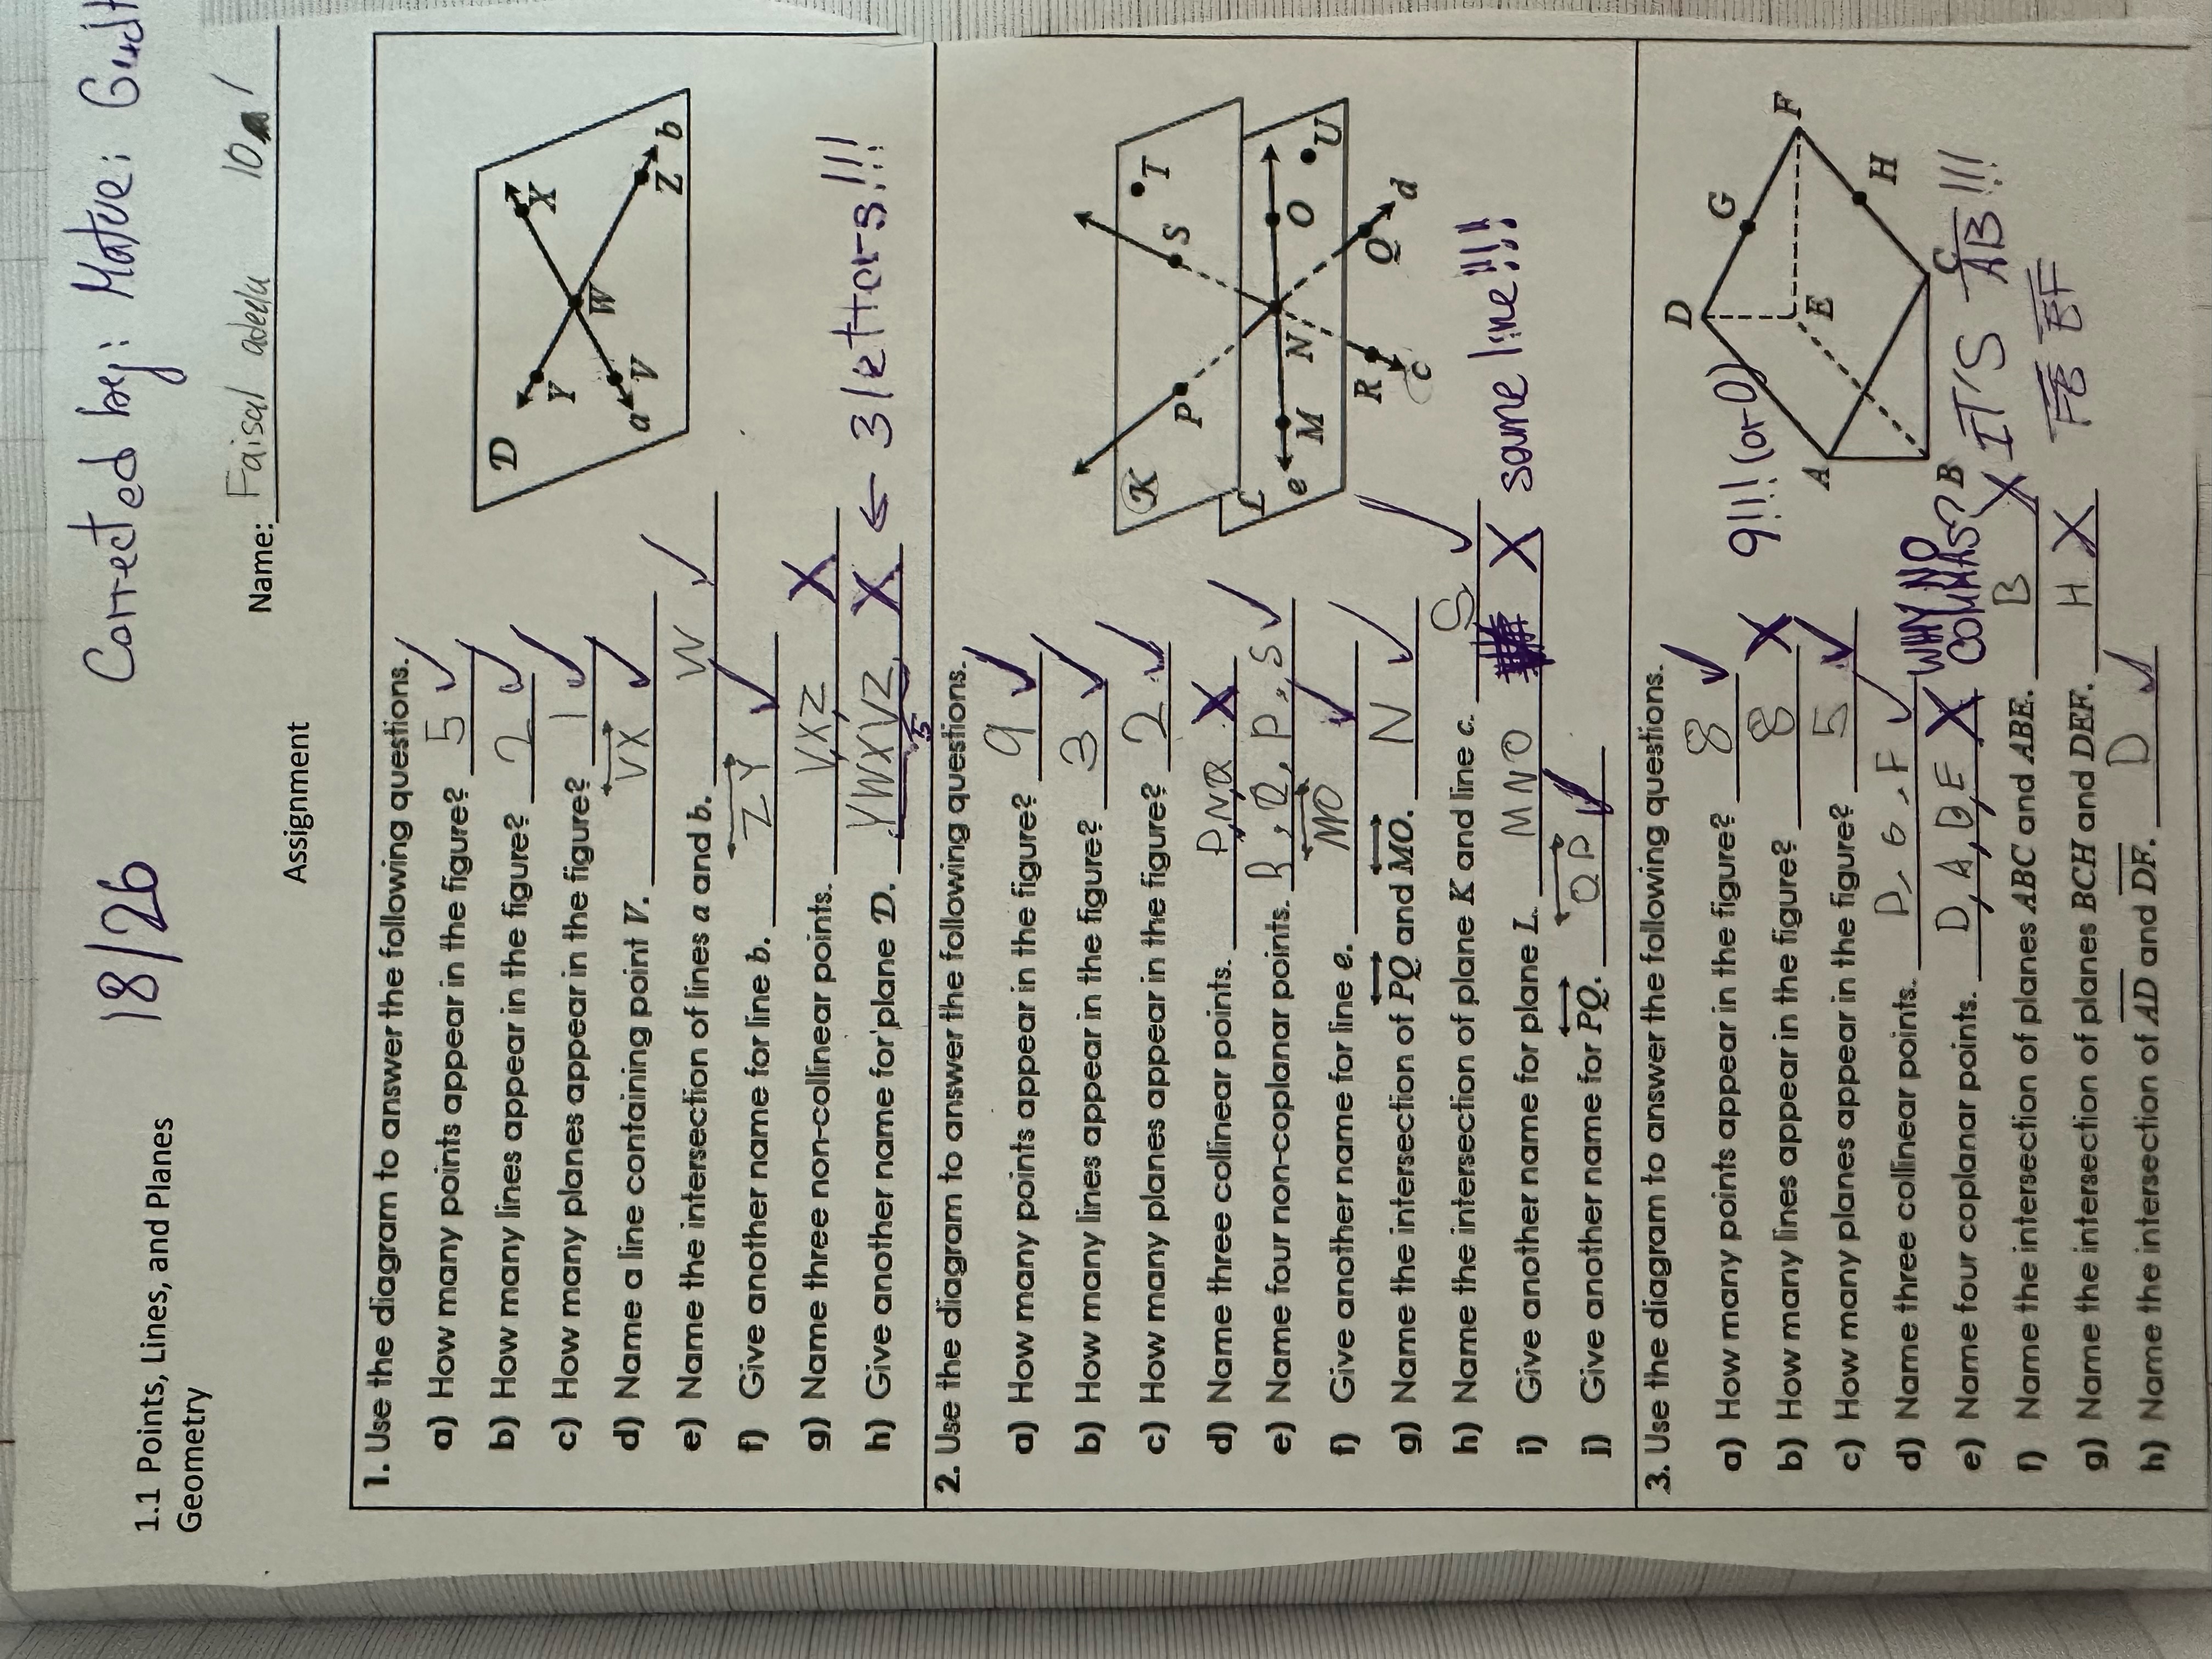 18/26
Corrected by: Matvei
1.1 Points, Lines, and Planes
Geometry
Name: Faisal adeelu 10 1
Assignment
1. Use the diagram to answer the following questions.
a) How many points appear in the figure? 5 ✓
b) How many lines appear in the figure? 2 ✓
c) How many planes appear in the figure? 1 ✓
d) Name a line containing point V. VX ✓
e) Name the intersection of lines a and b. W ✓
f) Give another name for line b. ZY ✓
g) Name three non-collinear points. V,X,Z X
h) Give another name for plane D. YWXVZ X ← 3 letters!!!
5
D
Y
X
W
a
V
Z
b
2. Use the diagram to answer the following questions.
a) How many points appear in the figure? 9 ✓
b) How many lines appear in the figure? 3 ✓
c) How many planes appear in the figure? 2 ✓
d) Name three collinear points. P,N,Q X
e) Name four non-coplanar points. R, Q, P, S ✓
f) Give another name for line e. MO ✓
g) Name the intersection of PQ and MO. N ✓
h) Name the intersection of plane K and line c. S ✓
i) Give another name for plane L. MNO X same line!!!!
j) Give another name for PQ. QP ✓
K
T
P
S
L
e
M
N
O
U
R
Q
c
d
3. Use the diagram to answer the following questions.
a) How many points appear in the figure? 8 ✓
b) How many lines appear in the figure? 8 X 9!!! (or 0)
c) How many planes appear in the figure? 5 ✓
d) Name three collinear points. D, G, F ✓
e) Name four coplanar points. D, A, B, E X WHY NO COMMAS?
f) Name the intersection of planes ABC and ABE. B X IT'S AB!!!
g) Name the intersection of planes BCH and DEF. H X FE EF
h) Name the intersection of AD and DF. D ✓
D
G
F
A
E
H
B
C